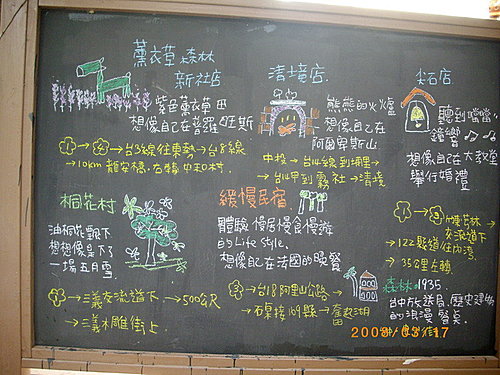 薰衣草森林
新社店
紫色薰衣草田
想像自己在普羅旺斯
①→②→台3線往東勢→台8線
→10km 龍安橋.右轉 中和村.
清境店
熊熊的火爐
想像自己在
阿爾卑斯山
中投→台14線到埔里→
→台14甲到霧社→清境
尖石店
聽到噹噹
鐘響
想像自己在大教堂
舉行婚禮
竹林
交流道下
→122縣道往內灣.
→35公里左轉
桐花村
油桐花飄下
想想像桌下了
一場五月雪
→三義交流道下→500公尺
→三義木雕街上
緩慢民宿
體驗 慢居慢食慢遊
的Life style.
想像自己在法國的晚餐
③→台18阿里山公路→
→石棹接169縣→奮起湖
森林1935.
台中放送局.歷史建物
的浪漫餐桌
2009/03/17